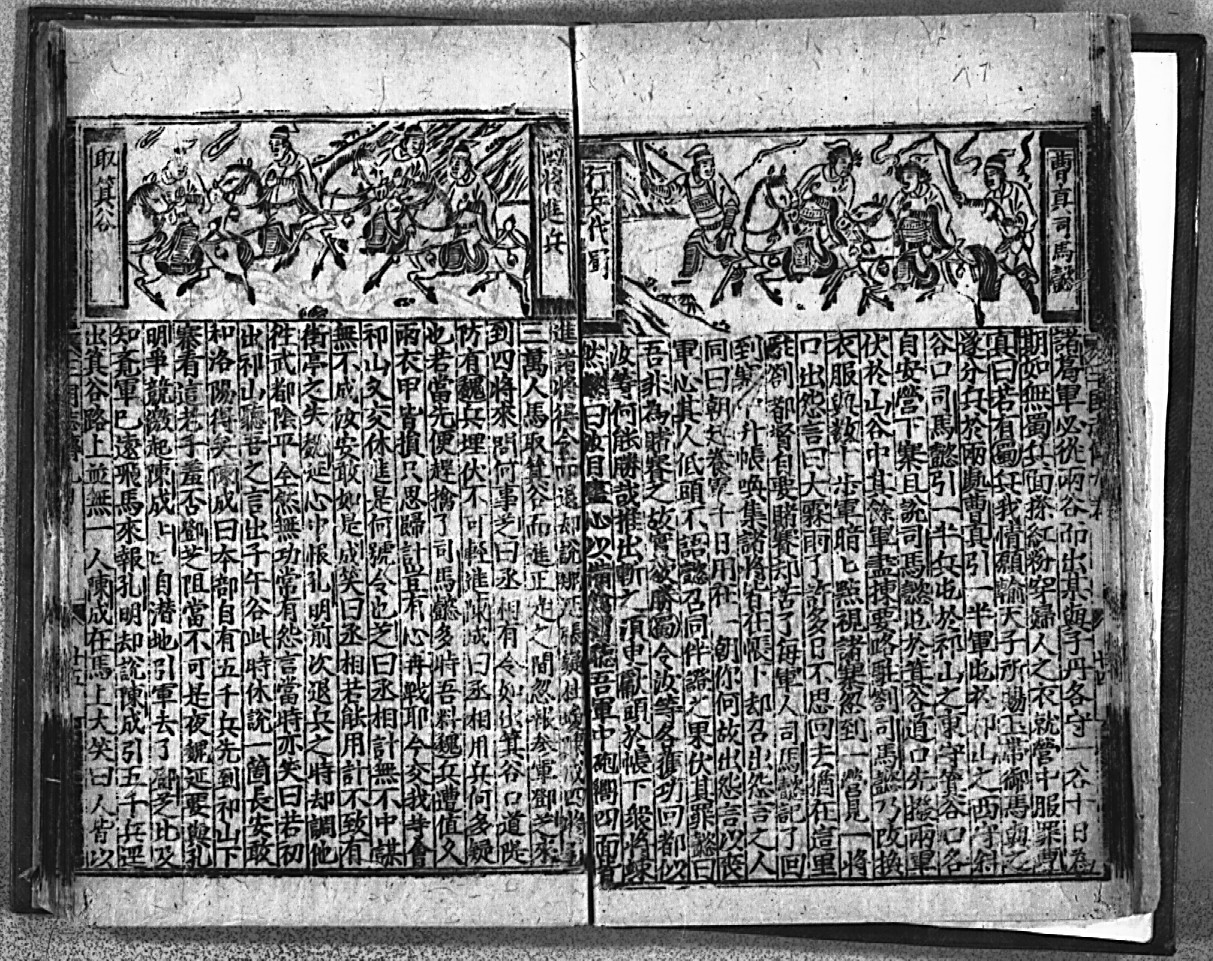 曹真司馬懿
行兵伐蜀
諸營軍必從兩谷而出其與子丹各守一谷十日為
期如無蜀兵面搽紅粉穿婦人之衣就營中服罪
真曰若有蜀兵我情願輸天子所賜玉帶御馬與之
遂分兵於兩處曹真引一半軍屯於祁山之西守斜
谷口司馬懿引一半兵屯於祁山之東守箕谷口各
自安營下寨且說司馬懿屯於箕谷道口先撥兩軍
伏於山谷中其餘軍盡揀要路駐劄司馬懿乃改換
衣服雜數十步軍暗匕點視諸寨忽到一營見一將
口出怨言曰大霖雨了許多日不思回去猶在這里
駐劄都督自要賭賽却苦了每軍人司馬懿記了回
到寨中升帳喚集諸將皆在帳下却召出怨言之人
同曰朝廷養軍千日用在一朝你何故出怨言以喪
軍心其人低頭不語懿召同伴證之果伏其罪懿曰
吾非為賭賽之故實欲勝蜀令汝等各獲功回都
汝等何能勝哉推出斬之須臾獻頭於帳下衆將悚
然懿曰汝目盡心以備 吾軍中砲響四面皆
四將進兵
取箕谷
進諸將得令而退却說 張嶷杜瓊陳式四將
二萬人馬取箕谷而進正走之間忽報參軍鄧芝來
到四將來問何事芝曰丞相有令如出箕谷口道隄
防有魏兵埋伏不可輕進陳成曰丞相用兵何多疑
也若當先便趕擒了司馬懿多時吾料魏兵遭值久
雨衣甲皆損只思歸計豈有心再戰耶今交我等會
祁山又交休進是何號令也芝曰丞相計無不中謀
無不成汝安敢如是成笑曰丞相若能用計不致有
街亭之失魏延心中恨孔明前次退兵之時却調他
徃武都陰平全然無功當有怨言當時亦笑曰若初
出祁山聽吾之言出子午谷此時休說一箇長安敢
和洛陽得矣陳成曰本部自有五千兵先到祁山下
寨看這老子羞否鄧芝阻當不可是夜魏延要與孔
明爭競激起陳成 自潛地引軍去了鄧芝比及
知覺軍已遠飛馬來報孔明却說陳成引五千兵逕
出箕谷路上並無一人陳成在馬上大笑曰人皆以